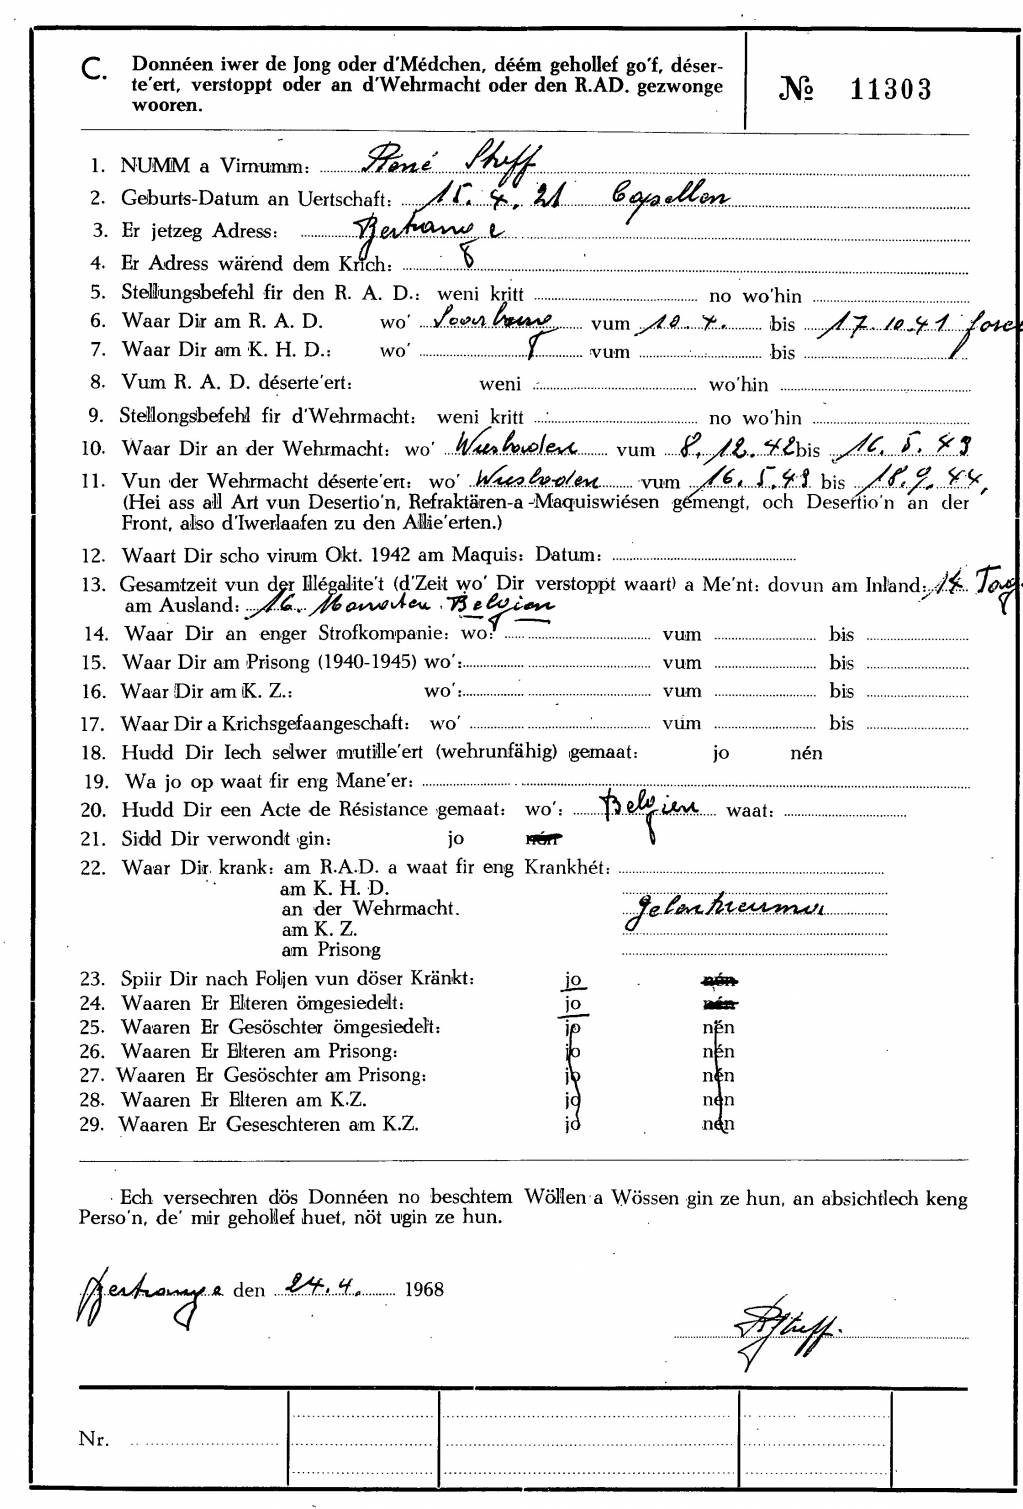 C. Donnéen iwer de Jong oder d'Médchen, déém gehollef go'f, déser-
te'ert, verstoppt oder an d'Wehrmacht oder den R.AD. gezwonge
wooren.
№ 11303
1. NUMM a Virnumm: René Steff
2. Geburts-Datum an Uertschaft: 15. 4. 21 Capellen
3. Er jetzeg Adress: Bertrange
4. Er Adress wärend dem Krich:
5. Stellungsbefehl fir den R. A. D.: weni kritt no wo'hin
6. Waar Dir am R. A. D. wo' vum 10. 4. bis 17.10.41
7. Waar Dir am K. H. D.: wo' vum bis
8. Vum R. A. D. déserte'ert: weni wo'hin
9. Stellongsbefehl fir d'Wehrmacht: weni kritt no wo'hin
10. Waar Dir an der Wehrmacht: wo' Wiesbaden vum 8. 12. 42 bis 16. 5. 43
11. Vun der Wehrmacht déserte'ert: wo' Wiesbaden vum 16. 5. 43 bis 18. 9. 44
(Hei ass all Art vun Desertio'n, Refraktären-a-Maquiswiésen gemengt, och Desertio'n an der
Front, also d'Iwerlaafen zu den Allie'erten.)
12. Waart Dir scho virum Okt. 1942 am Maquis: Datum:
13. Gesamtzeit vun der Illégalite't (d'Zeit wo' Dir verstoppt waart) a Me'nt: dovun am Inland: 14 Tag
am Ausland: 16 Monaten Belgien
14. Waar Dir an enger Strofkompanie: wo: vum bis
15. Waar Dir am Prisong (1940-1945) wo': vum bis
16. Waar Dir am K. Z.: wo': vum bis
17. Waar Dir a Krichsgefaangeschaft: wo' vum bis
18. Hudd Dir Iech selwer mutille'ert (wehrunfähig) gemaat: jo nén
19. Wa jo op waat fir eng Mane'er:
20. Hudd Dir een Acte de Résistance gemaat: wo': Belgien waat:
21. Sidd Dir verwondt gin: jo nén
22. Waar Dir krank: am R.A.D. a waat fir eng Krankhét:
am K. H. D.
an der Wehrmacht. Gelenkreuma
am K. Z.
am Prisong
23. Spiir Dir nach Foljen vun döser Kränkt: jo nén
24. Waaren Er Elteren ömgesiedelt: jo nén
25. Waaren Er Gesöschter ömgesiedelt: jo nén
26. Waaren Er Elteren am Prisong: jo nén
27. Waaren Er Gesöschter am Prisong: jo nén
28. Waaren Er Elteren am K.Z. jo nén
29. Waaren Er Geseschteren am K.Z. jo nén
Ech versechren dös Donnéen no beschtem Wöllen a Wössen gin ze hun, an absichtlech keng
Perso'n, de' mir gehollef huet, nöt ugin ze hun.
Bertrange den 24. 4. 1968
RSteff.
Nr.